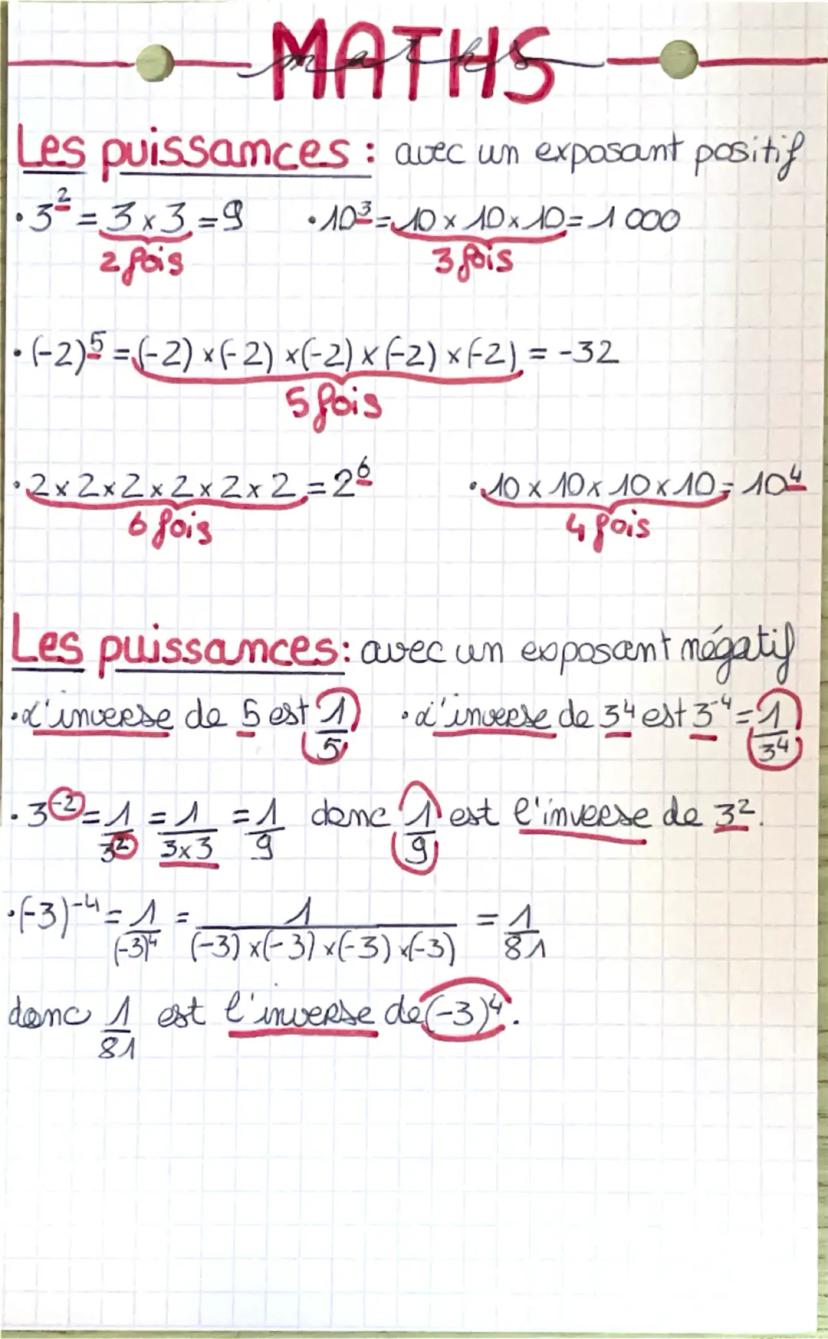 MATHS
maths
Les puissances : avec un exposant positif
• 3² = 3 × 3 = 9 • 10³ = 10 × 10 × 10 = 1 000
2 fois 3 fois
• (-2)⁵ = (-2) × (-2) × (-2) × (-2) × (-2) = -32
5 fois
• 2 × 2 × 2 × 2 × 2 × 2 = 2⁶ • 10 × 10 × 10 × 10 = 10⁴
6 fois 4 fois
Les puissances : avec un exposant négatif
• L'inverse de 5 est 1/5 • L'inverse de 3⁴ est 3⁻⁴ = 1/3⁴
• 3⁻² = 1/3² = 1/(3×3) = 1/9 donc 1/9 est l'inverse de 3².
• (-3)⁻⁴ = 1/(-3)⁴ = 1/((-3) × (-3) × (-3) × (-3)) = 1/81
donc 1/81 est l'inverse de (-3)⁴.